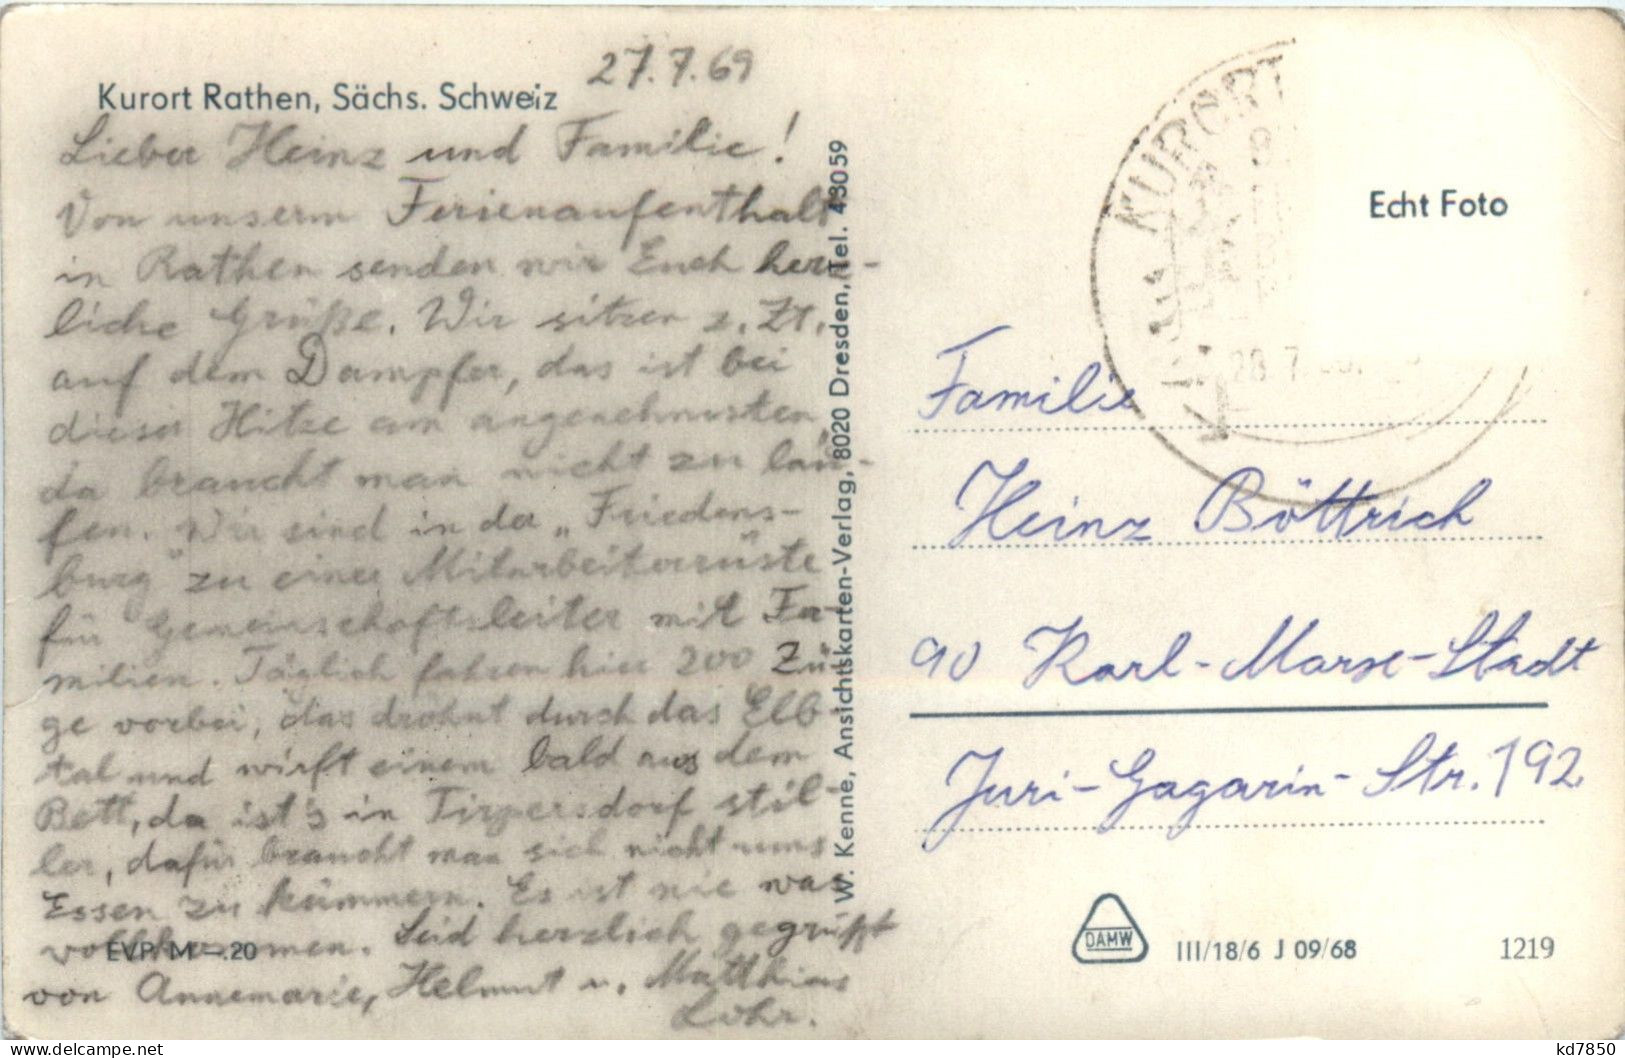 27.7.69
Kurort Rathen, Sächs. Schweiz
Lieber Heinz und Familie!
Von unserm Ferienaufenthalt
in Rathen senden wir Euch herz-
liche Grüße. Wir sitzen z. Zt.
auf dem Dampfer, das ist bei
dieser Hitze am angenehmsten,
da braucht man nicht zu lau-
fen. Wir sind in der „Friedens-
burg" zu einer Mitarbeiterrüste
für Gemeinschaftsleiter mit Fa-
milien. Täglich fahren hier 200 Zü-
ge vorbei, das dröhnt durch das Elb-
tal und wirft einem bald aus dem
Bett, da ist's in Tirpersdorf stil-
ler, dafür braucht man sich nicht ums
Essen zu kümmern. Es ist nie was
vollkommen. Seid herzlich gegrüßt
von Annemarie, Helmut u. Matthias
Lohr.
EVP M -.20
W. Kenne, Ansichtskarten-Verlag, 8020 Dresden, Tel. 43059
KURORT
28.7.
Echt Foto
Familie
Heinz Böttrich
90 Karl-Marx-Stadt
Juri-Gagarin-Str. 192
DAMW
III/18/6 J 09/68
1219
kd7850